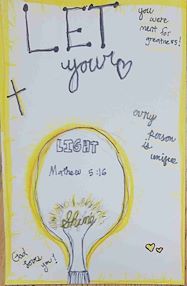 LET
your
you
were
ment for
greatness!
every
person
is
unique
LIGHT
Mathew 5:16
Shine
God
loves
you!